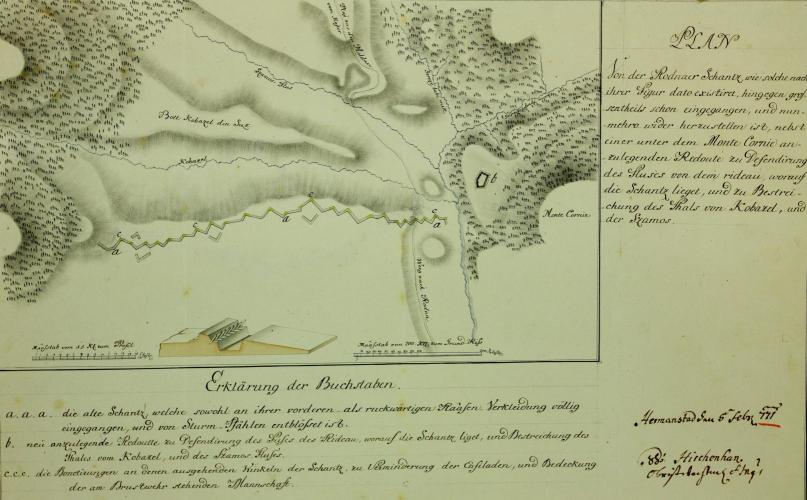 PLAN
Von der Rodnaer Schantz, wie solche nach
ihrer Figur dato existiret, hingegen gröss-
sentheils schon eingegangen, und nun-
mehro wider herzustellen ist, nebst
einer unter dem Monte Cornic an-
zulegenden Redoute zu Defendirung
des Fuses von dem rideau, worauf
die Schantz lieget, und zu Bestrei-
chung des Thals von Kobazel, und
der Szamos.
Bott Kobazel din Sus
Kobazel
b
Monte Cornic
c
c
c
c
a
a
a
Weg nach Rodna
Maasstab von
Maasstab von
Erklärung der Buchstaben.
a. a. a. die alte Schantz, welche sowohl an ihrer vorderen als ruckwärtigen Verkleidung völlig
eingegangen, und von Sturm-Pfählen entblöset ist.
b. neü anzulegende Redoutte zu Defendirung des Fuses des Rideau, worauf die Schantz liget, und Bestreichung des
Thales vom Kobazel, und des Szamos Fluses.
c. c. c. die Bonetirungen an denen ausgehenden Winkeln der Schantz, zu Verminderung der Enfiladen, und Bedeckung
der am Brustwehr stehenden Mannschaft.
Hermanstad den 6 Febr. 771